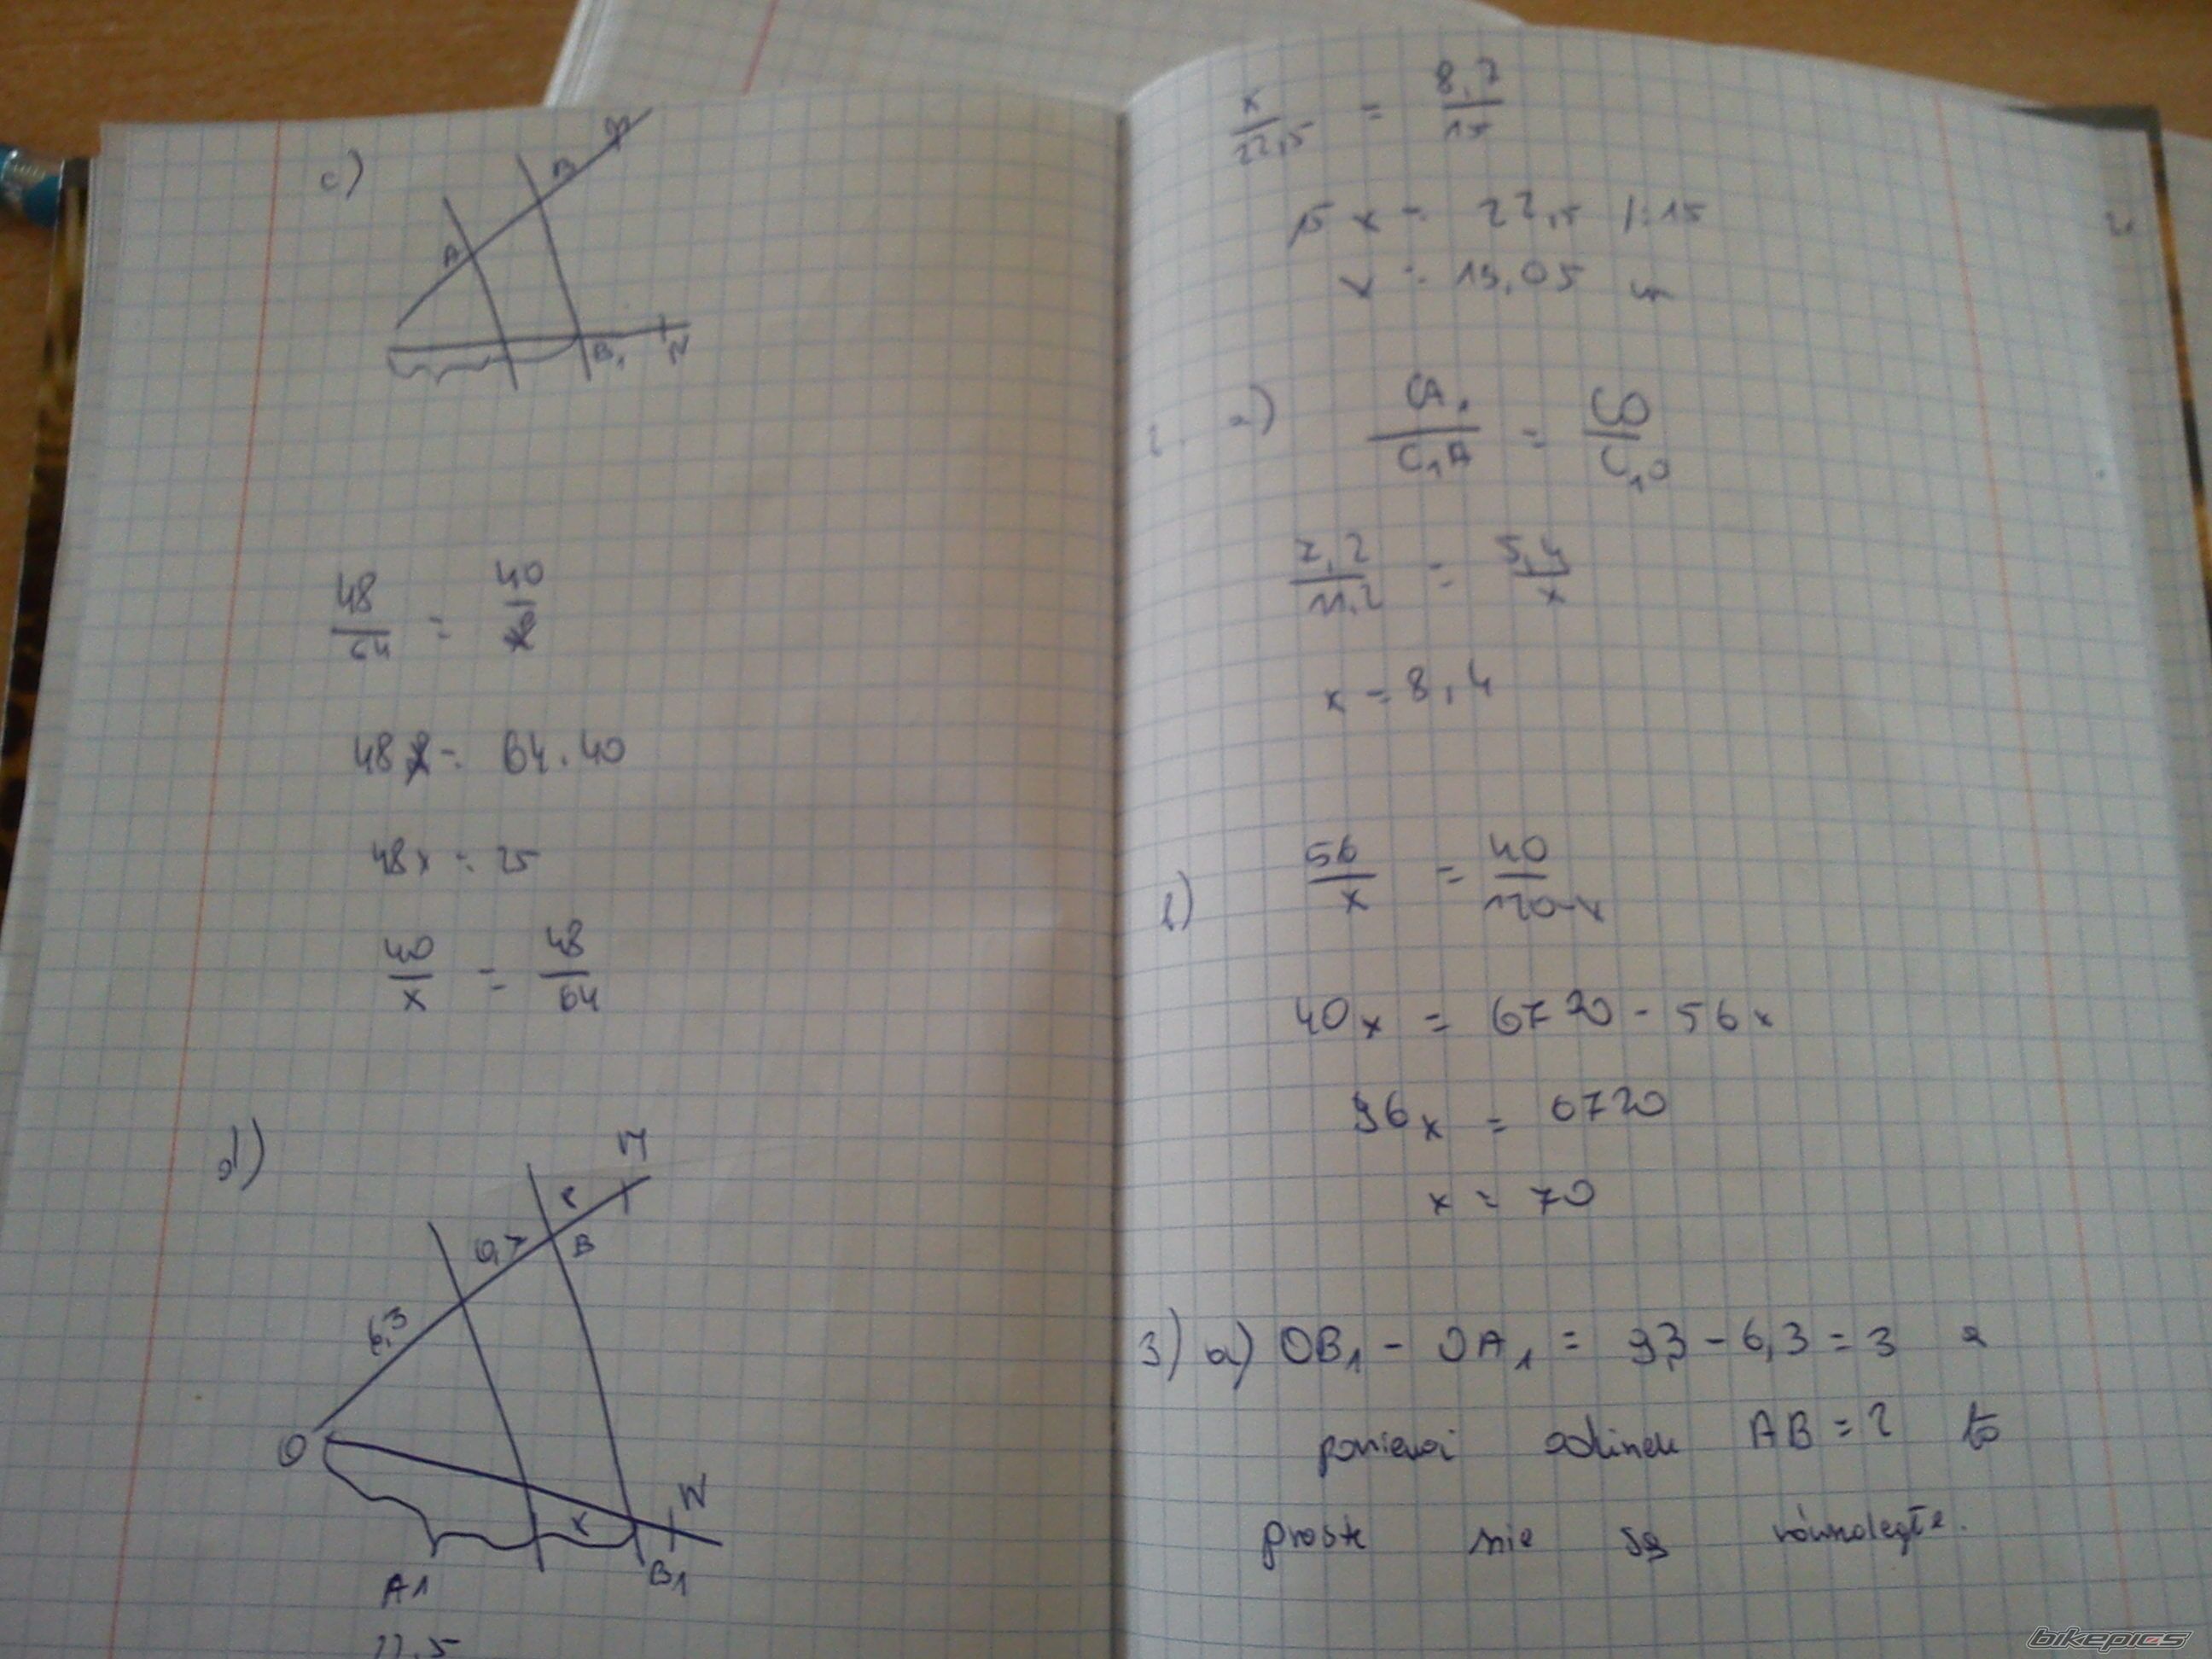 c)
A B
B₁ N
48/64 = 40/x
48x = 64 · 40
48x = 25
40/x = 48/64
d)
M
0,7 B
6,3
O
x N
A1 B1
22,5
x/22,5 = 8,7/15
15x = 22,5 /:15
x = 13,05
a) CA₁/C₁A = CO/C₁O
7,2/11,2 = 5,4/x
x = 8,4
b) 56/x = 40/120-x
40x = 6720 - 56x
96x = 6720
x = 70
3) a) OB₁ - OA₁ = 9,3 - 6,3 = 3 a
ponieważ odcinek AB = 2 to
proste nie są równoległe.
bikepics